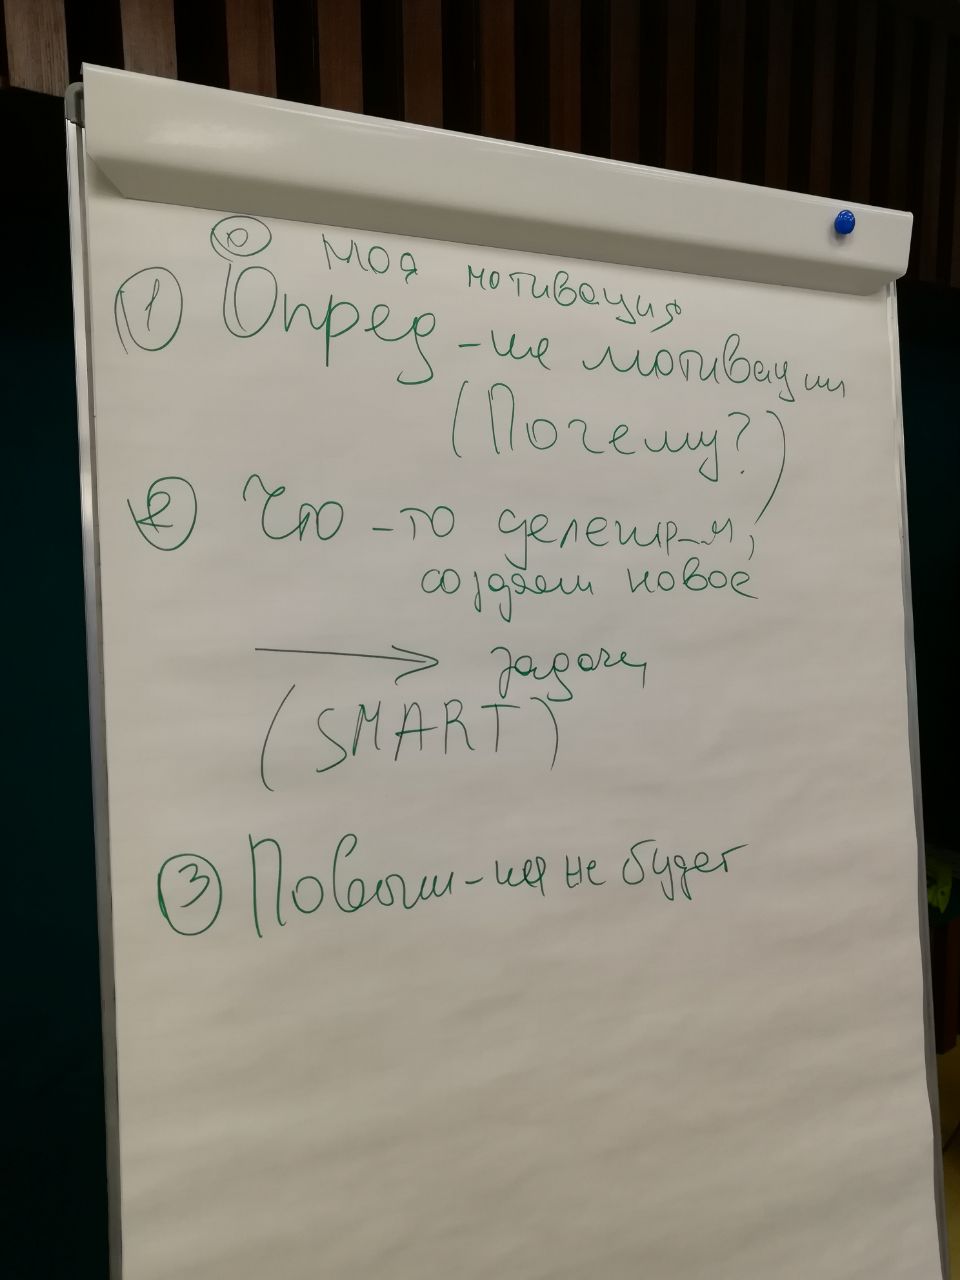 0 моя мотивация
1 Опред-ие мотивации
(Почему?)
2 Что-то делегир-м,
создаем новое
→ задачи
(SMART)
3 Повыш-ия не будет